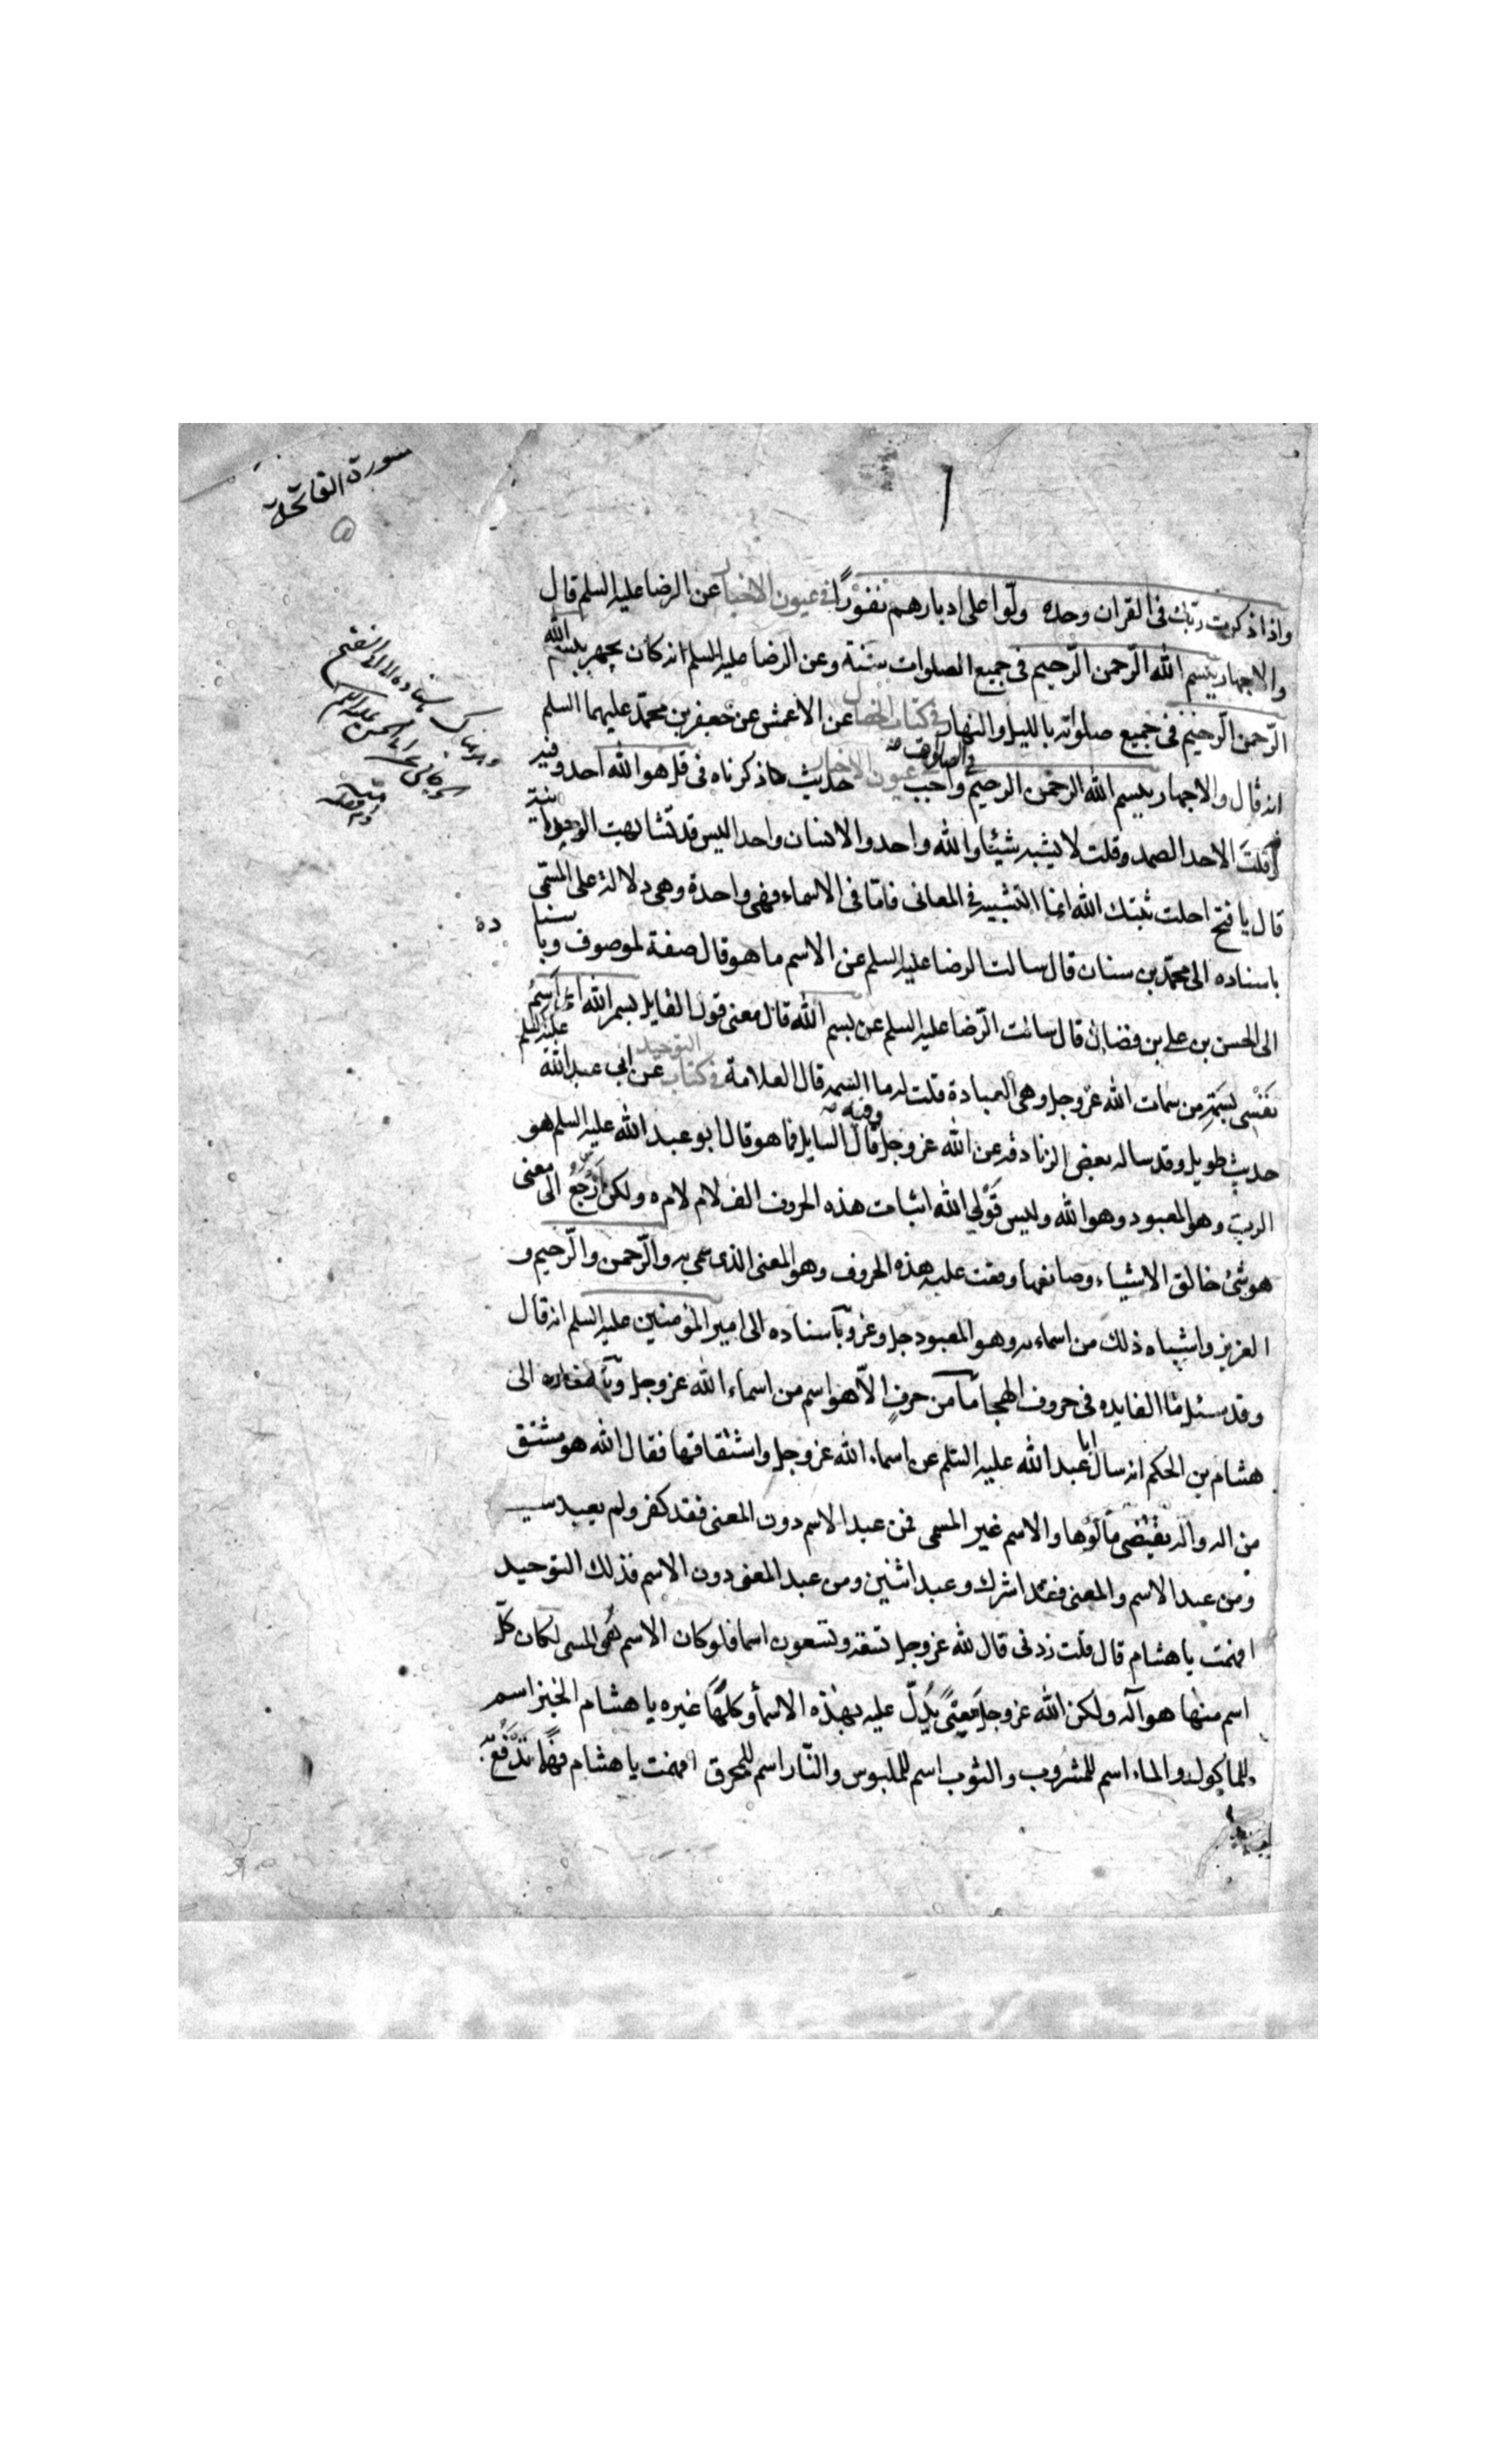 سورة الفاتحة
واذا ذكرت ربك فى القران وحده ولّوا على ادبارهم نفورًا فى عيون الاخبار عن الرضا عليه السلم قال
والاجهار ببسم الله الرّحمن الرّحيم فى جميع الصلوات سنّة وعن الرضا عليه السلم انه كان يجهر ببسم الله
الرّحمن الرّحيم فى جميع صلوته بالليل والنهار فى كتاب الخصال عن الاعمش عن جعفر بن محمّد عليهما السلم
انه قال والاجهار ببسم الله الرحمن الرحيم فى الصلوة واجب عيون الاخبار حديث ذكرناه فى قل هو الله احد وفيه
قلت الاحد الصمد وقلت لا يشبه شيئا والله واحد والانسان واحد اليس قد تشابهت الوحدانية
قال يا فتح احلت ثبتك الله انما التشبيه فى المعانى فامّا فى الاسماء فهى واحدة وهى دلالة على المسمّى
باسناده الى محمّد بن سنان قال سالت الرضا عليه السلم عن الاسم ما هو قال صفة لموصوف وباسناده
الى الحسن بن على بن فضال قال سالت الرّضا عليه السلم عن بسم الله قال معنى قول القايل بسم الله اى اَسِمُ
نفسى بسمة من سمات الله عزّ وجل وهى العبادة قلت له ما السمة قال العلامة فى كتاب التوحيد عن ابى عبد الله عليه السلم
حديث طويل وقد ساله بعض الزنادقة عن الله عز وجل وفيه قال السايل فما هو قال ابو عبد الله عليه السلم هو
الربّ وهو المعبود وهو الله وليس قَوْلي الله اثبات هذه الحروف الف لام لام ه ولكن ارجع الى معنى
هو شئ خالق الاشياء وصانعها وقعت عليه هذه الحروف وهو المعنى الذى سمى به والرّحمن والرّحيم و
العزيز واشباه ذلك من اسمائه وهو المعبود جل وعز وباسناده الى امير المؤمنين عليه السلم انه قال
وقد سئل ما الفايده فى حروف الهجا ما من حرفٍ الّا هو اسم من اسماء الله عز وجل وباسناده الى
هشام بن الحكم انه سال ابا عبد الله عليه السّلم عن اسماء الله عز وجل واشتقاقها فقال الله هو مشتق
من اله واله يقتضى مألوها والاسم غير المسمى فمن عبد الاسم دون المعنى فقد كفر ولم يعبد
ومن عبد الاسم والمعنى فقد اشرك وعبد اثنين ومن عبد المعنى دون الاسم فذلك التوحيد
افهمت يا هشام قال قلت زدنى قال لله عز وجل تسعة وتسعون اسما فلو كان الاسم هُو المسمى لكان كلّ
اسم منها هو اله ولكن الله عز وجل معنًى يُدلّ عليه بهذه الاسماء وكلّها غيره يا هشام الخبز اسم
للماكول والماء اسم للمشروب والثوب اسم للملبوس والنّار اسم للمحرق افهمت يا هشام فهمًا تدفع به